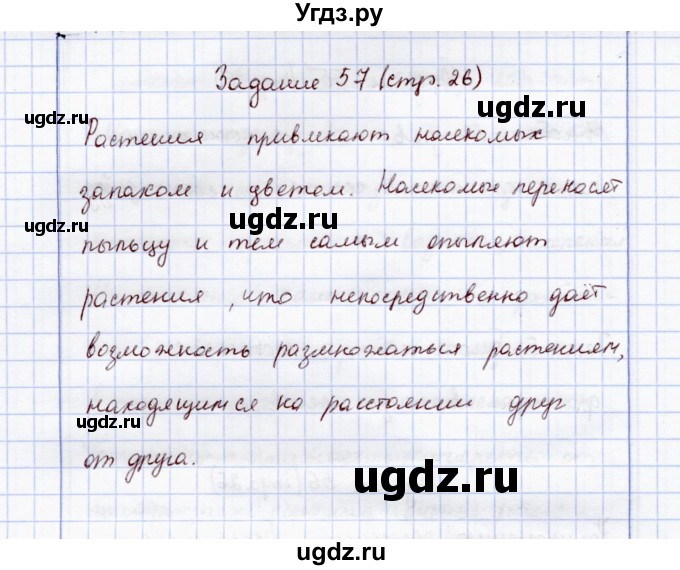 Угдз.ру
Задание 57 (стр. 26)
ugdz.ru
ugdz.ru
Растения привлекают насекомых
запахом и цветом. Насекомые переносят
ugdz.ru
пыльцу и тем самым опыляют
растения, что непосредственно даёт
ugdz.ru
возможность размножаться растениям,
находящимся на расстоянии друг
от друга.
ugdz.ru
ugdz.ru